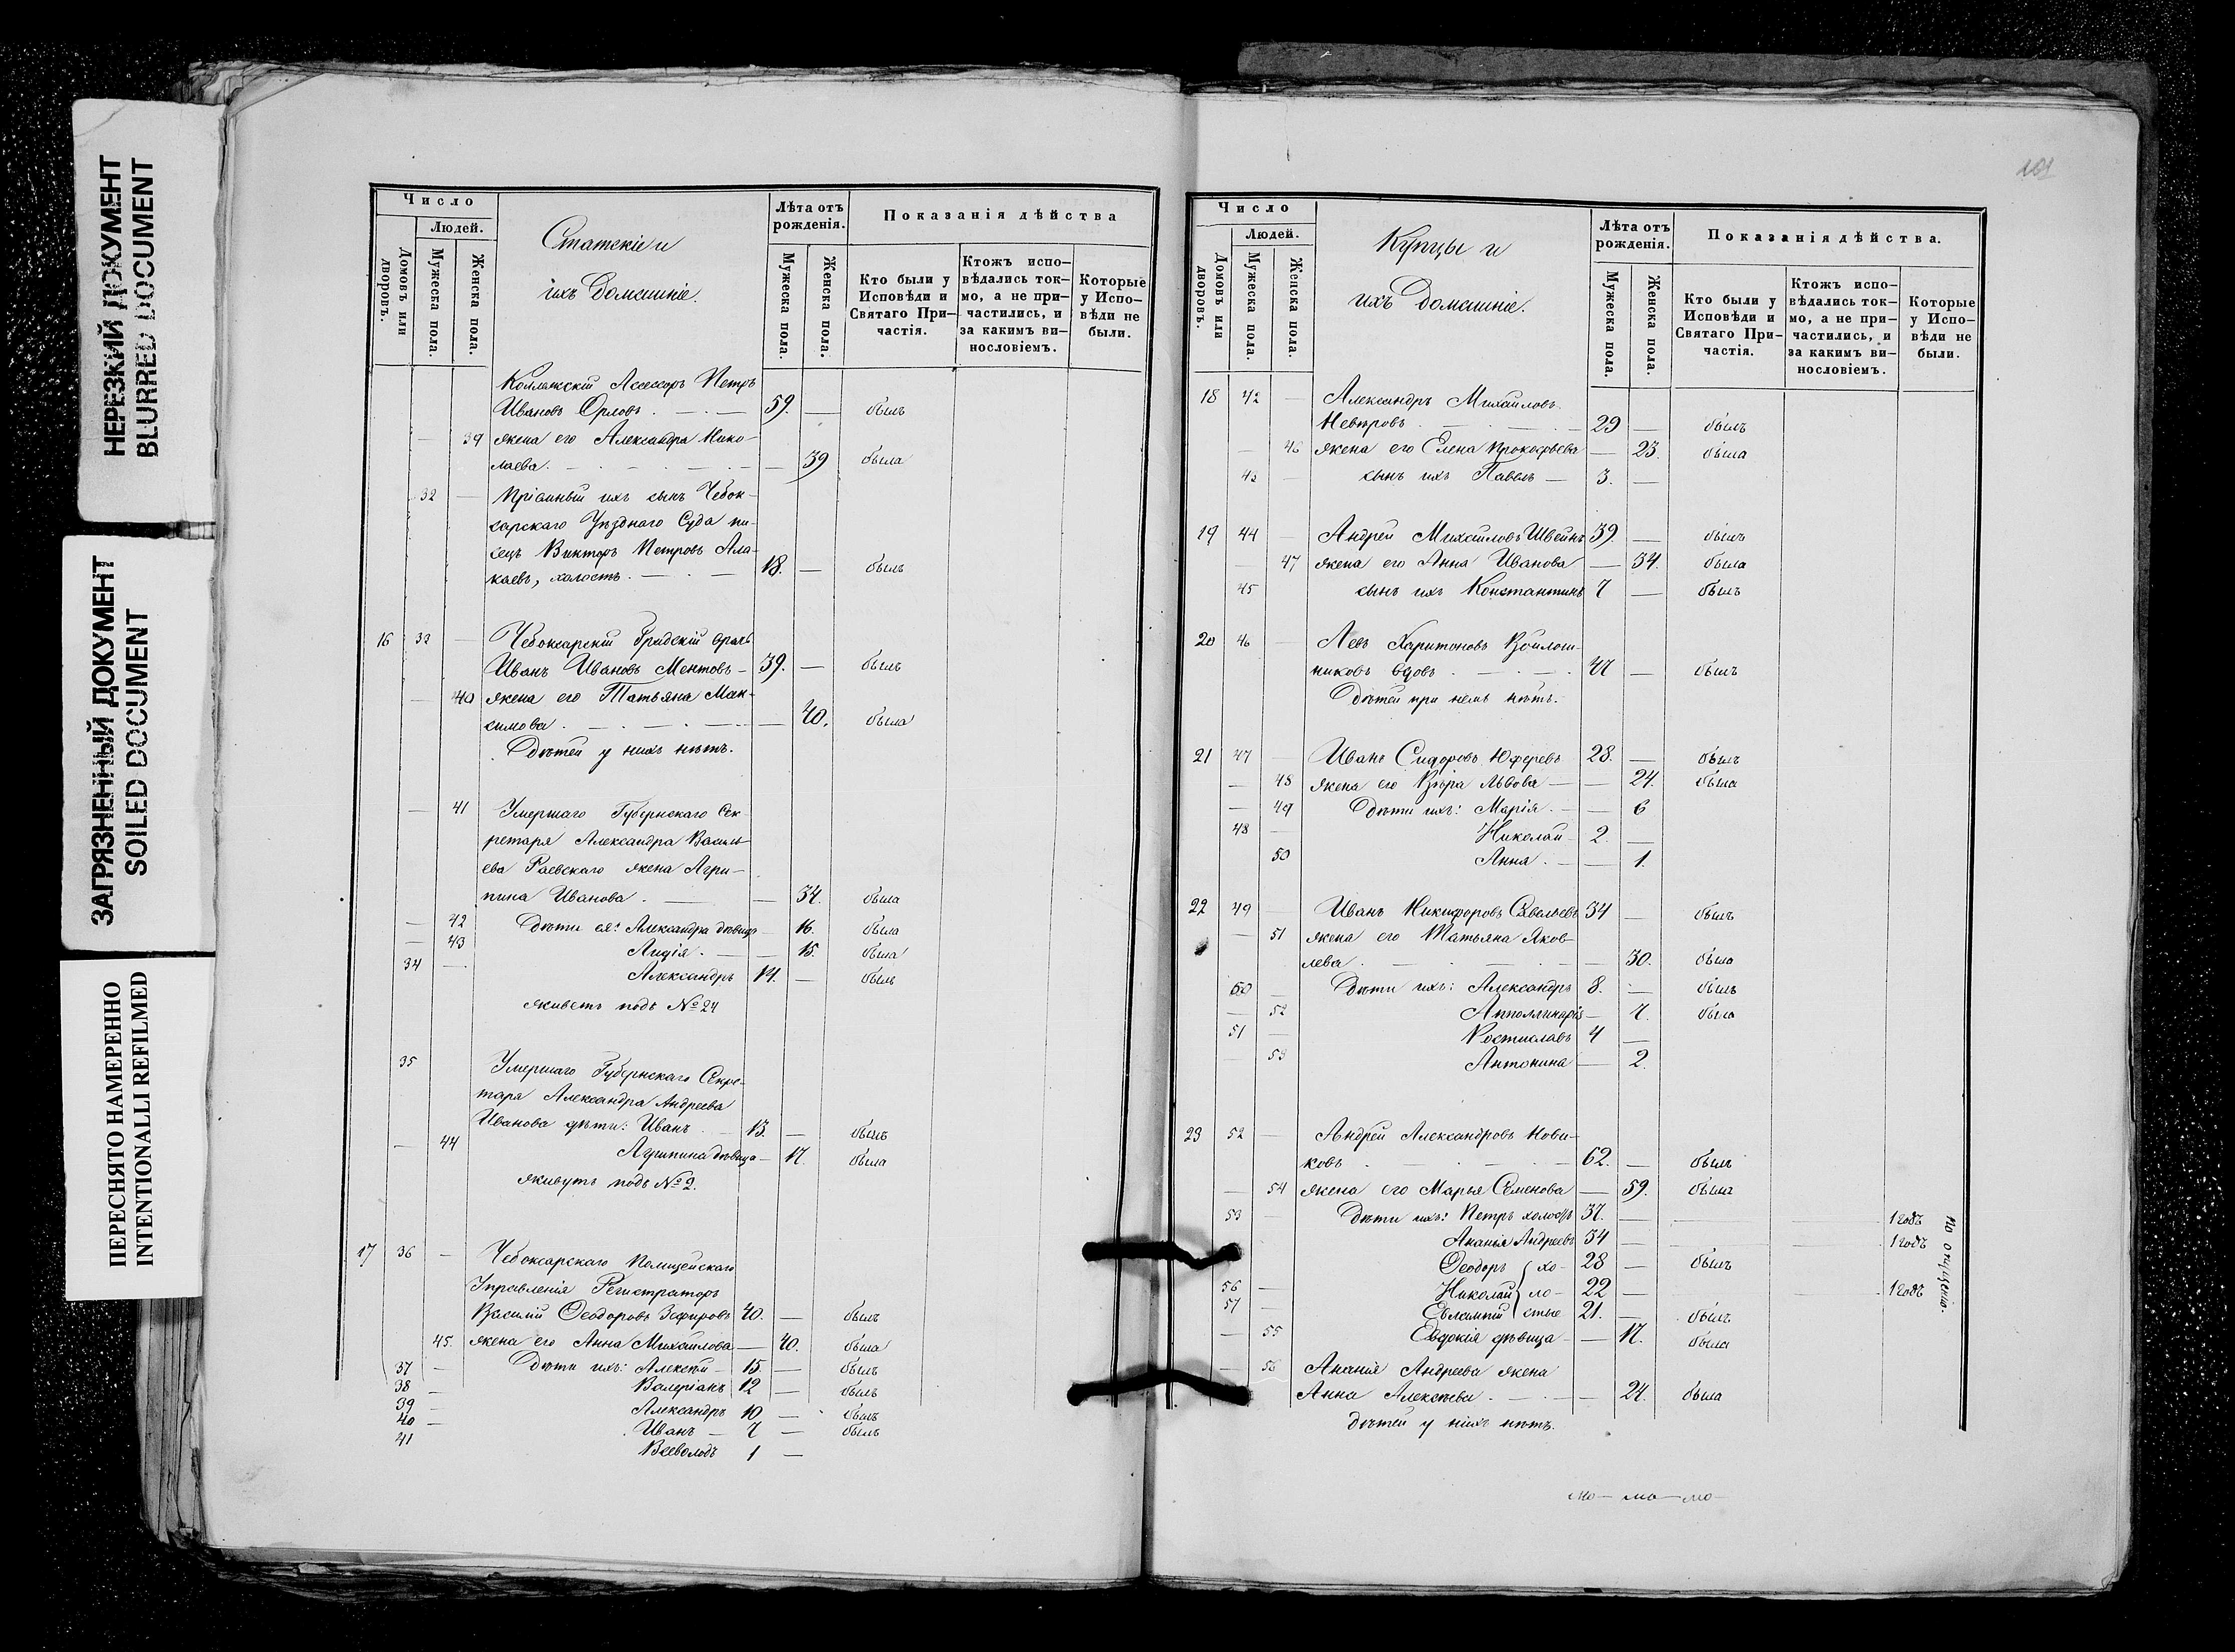 НЕРЕЗКИЙ ДОКУМЕНТ
BLURRED DOCUMENT
ЗАГРЯЗНЕННЫЙ ДОКУМЕНТ
SOILED DOCUMENT
ПЕРЕСНЯТО НАМЕРЕННО
INTENTIONALLI REFILMED
Число
Людей.
Домовъ или дворовъ.
Мужеска пола.
Женска пола.
Статскіе и
ихъ Домашніе.
Лѣта отъ рожденія.
Мужеска пола.
Женска пола.
Показанія дѣйства
Кто были у Исповѣди и Святаго При-частія.
Ктожъ испо-вѣдались ток-мо, а не при-частились, и за какимъ ви-нословіемъ.
Которые у Испо-вѣди не были.
Коллежскій Ассесоръ Петръ
Ивановъ Орловъ . — . — 59. — былъ
— 39 жена его Александра Нико-
лаева. — 39 была
32 — Пріемный ихъ сынъ Чебок-
сарскаго Уѣзднаго Суда пи-
сецъ Викторъ Петровъ Ала-
каевъ, холостъ. — 18. — былъ
16 33 — Чебоксарскій Градскій врачъ
Иванъ Ивановъ Ментовъ — 39. — былъ
— 40 жена его Татьяна Мак-
симова . — 40. была
Дѣтей у нихъ нѣтъ.
— 41 Умершаго Губернскаго Сек-
ретаря Александра Василь-
ева Раевскаго жена Агри-
пина Иванова . — 34. была
— 42 Дѣти ея: Александра дѣвица — 16. была
— 43 Лидія . — 15. была
34 — Александръ 14. — былъ
живетъ подъ № 24
35 Умершаго Губернскаго Секре-
таря Александра Андреева
Иванова дѣти: Иванъ . — 13. — былъ
— 44 Агрипина дѣвица — 17. была
живутъ подъ № 2.
17 36 — Чебоксарскаго Полицейскаго
Управленія Регистраторъ
Василій Ѳеодоровъ Зефировъ 40. — былъ
45. жена его Анна Михайлова — 40. была
37 — Дѣти ихъ: Алексѣй — 15 — былъ
38 — Валеріанъ 12 — былъ
39 — Александръ 10 — былъ
40 — Иванъ — 7 — былъ
41 Всеволодъ 1 —
101
Число
Людей.
Домовъ или дворовъ.
Мужеска пола.
Женска пола.
Купцы и
ихъ Домашніе.
Лѣта отъ рожденія.
Мужеска пола.
Женска пола.
Показанія дѣйства.
Кто были у Исповѣди и Святаго При-частія.
Ктожъ испо-вѣдались ток-мо, а не при-частились, и за какимъ ви-нословіемъ.
Которые у Испо-вѣди не были.
18 42 — Александръ Михайловъ
29 — былъ
— 46 жена его Елена Прокофьева — 23. была
43 — сынъ ихъ Павелъ — 3. —
19 44 — Андрей Михайловъ 39. — былъ
— 47 жена его Анна Иванова — 34. была
45 сынъ ихъ Константинъ 7 — былъ
20 46 — Левъ Харитоновъ Войлош-
никовъ вдовъ . — 47 — былъ
Дѣтей при немъ нѣтъ.
21 47 — Иванъ Сидоровъ Юферевъ 28. — былъ
— 48 жена его Вѣра Львова — 24. была
— 49 Дѣти ихъ: Марія . — 6
48 — Николай 2. —
50 Анна . — 1.
22 49 — Иванъ Никифоровъ Савельевъ 34 — былъ
— 51 жена его Татьяна Яков-
лева . — 30. была
50 — Дѣти ихъ: Александръ 8. — былъ
— 52 Апполлинарія — 7. была
51 — Ростиславъ 4 —
— 53 Антонина — 2.
23 52 — Андрей Александровъ Нови-
ковъ . — 62. — былъ
— 54 жена его Марья Семенова — 59. была
53 — Дѣти ихъ: Петръ холостъ 37. — 1 годъ
Ананія Андреевъ 34 — 1 годъ
Ѳеодоръ хо- 28 — былъ
56 — Николай ло- 22 — 1 годъ
57 — Евлампій стые 21. — былъ
— 55 Евдокія дѣвица — 17. была
по опущенію.
— 56 Ананія Андреева жена
Анна Алексѣева . — 24. была
Дѣтей у нихъ нѣтъ.